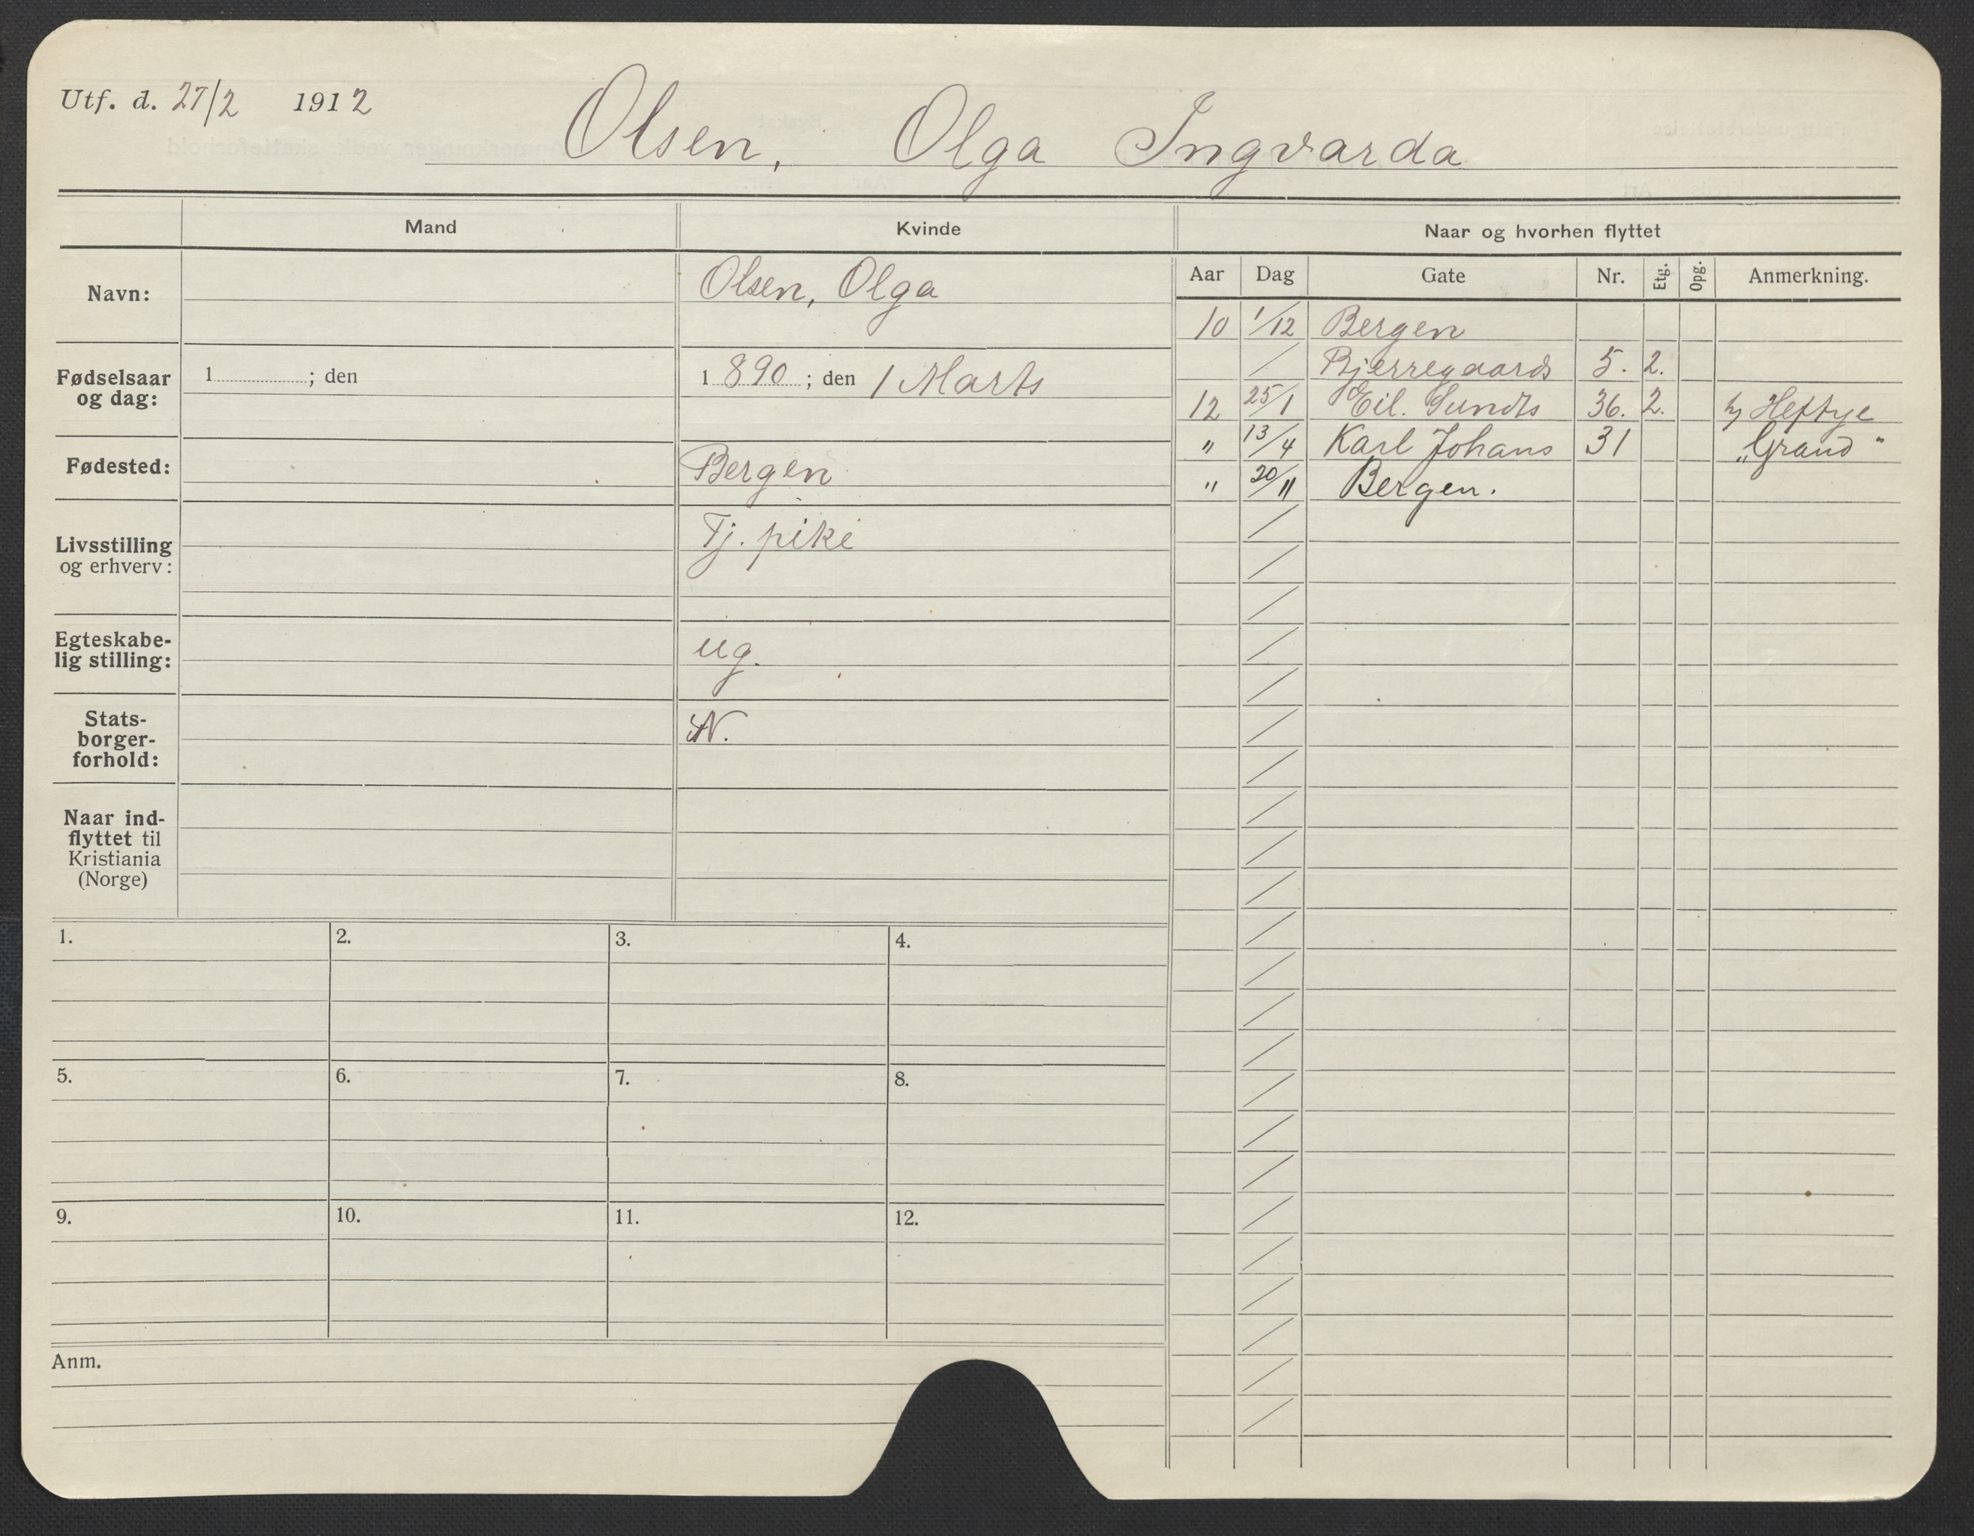 Utf. d. 27/2 1912
Olsen, Olga Ingvarda
Mand
Kvinde
Naar og hvorhen flyttet
Aar Dag Gate Nr. Etg. Opg. Anmerkning.
Navn: Olsen, Olga
Fødselsaar og dag: 1 ; den 1 890 ; den 1 Marts
Fødested: Bergen
Livsstilling og erhverv: Tj. pike
Egteskabe-
lig stilling: ug.
Stats-
borger-
forhold: N.
Naar ind-
flyttet til
Kristiania
(Norge)
10 1/12 Bergen
/ Bjerregaards 5. 2.
12 25/1 Eil. Sundts 36. 2. Heftye
" 13/4 Karl Johans 31 „Grand"
" 20/11 Bergen.
1. 2. 3. 4.
5. 6. 7. 8.
9. 10. 11. 12.
Anm.